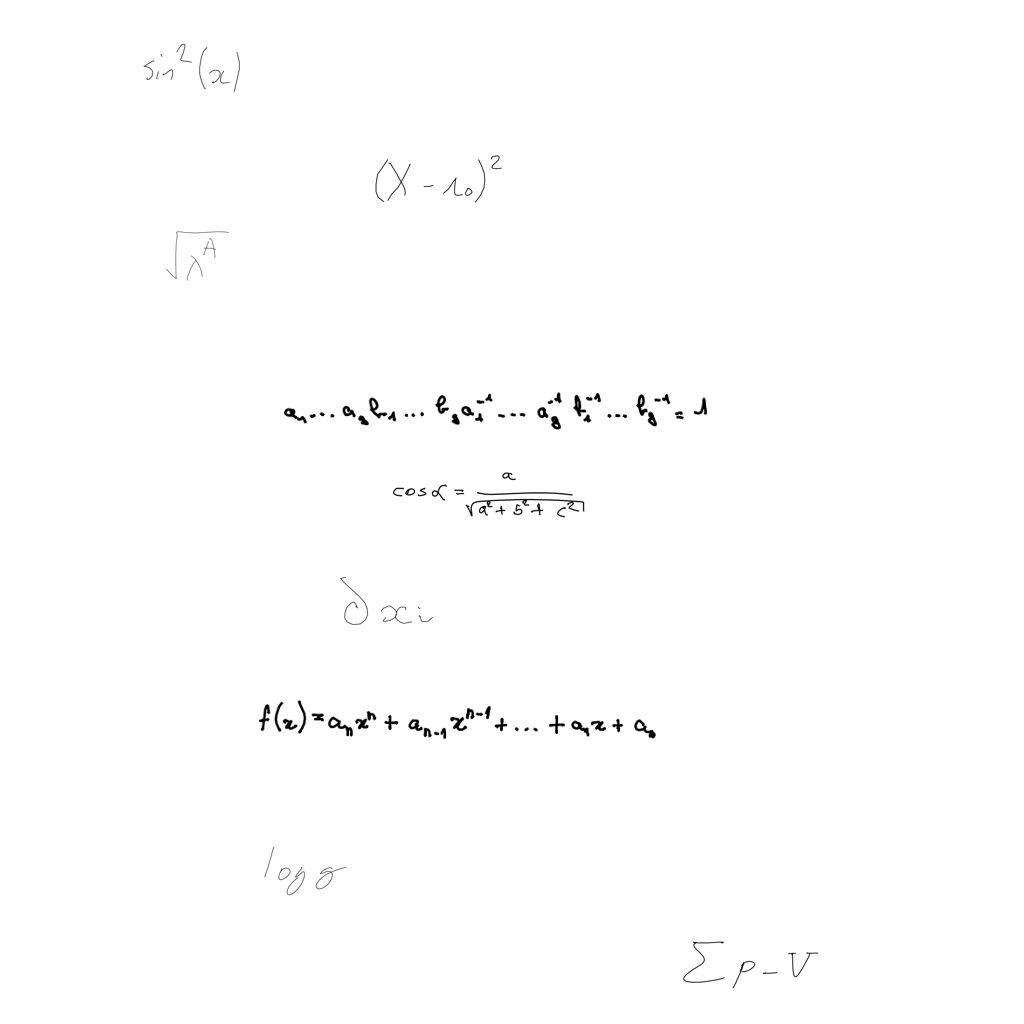 sin²(x)
(X - r₀)²
√(λ^A)
a₁ ... a_g b₁ ... b_g a₁⁻¹ ... a_g⁻¹ b₁⁻¹ ... b_g⁻¹ = 1
cos α = a / √(a² + b² + c²)
∂xᵢ
f(x) = aₙxⁿ + aₙ₋₁xⁿ⁻¹ + ... + a₁x + a₀
log g
∑ p - V